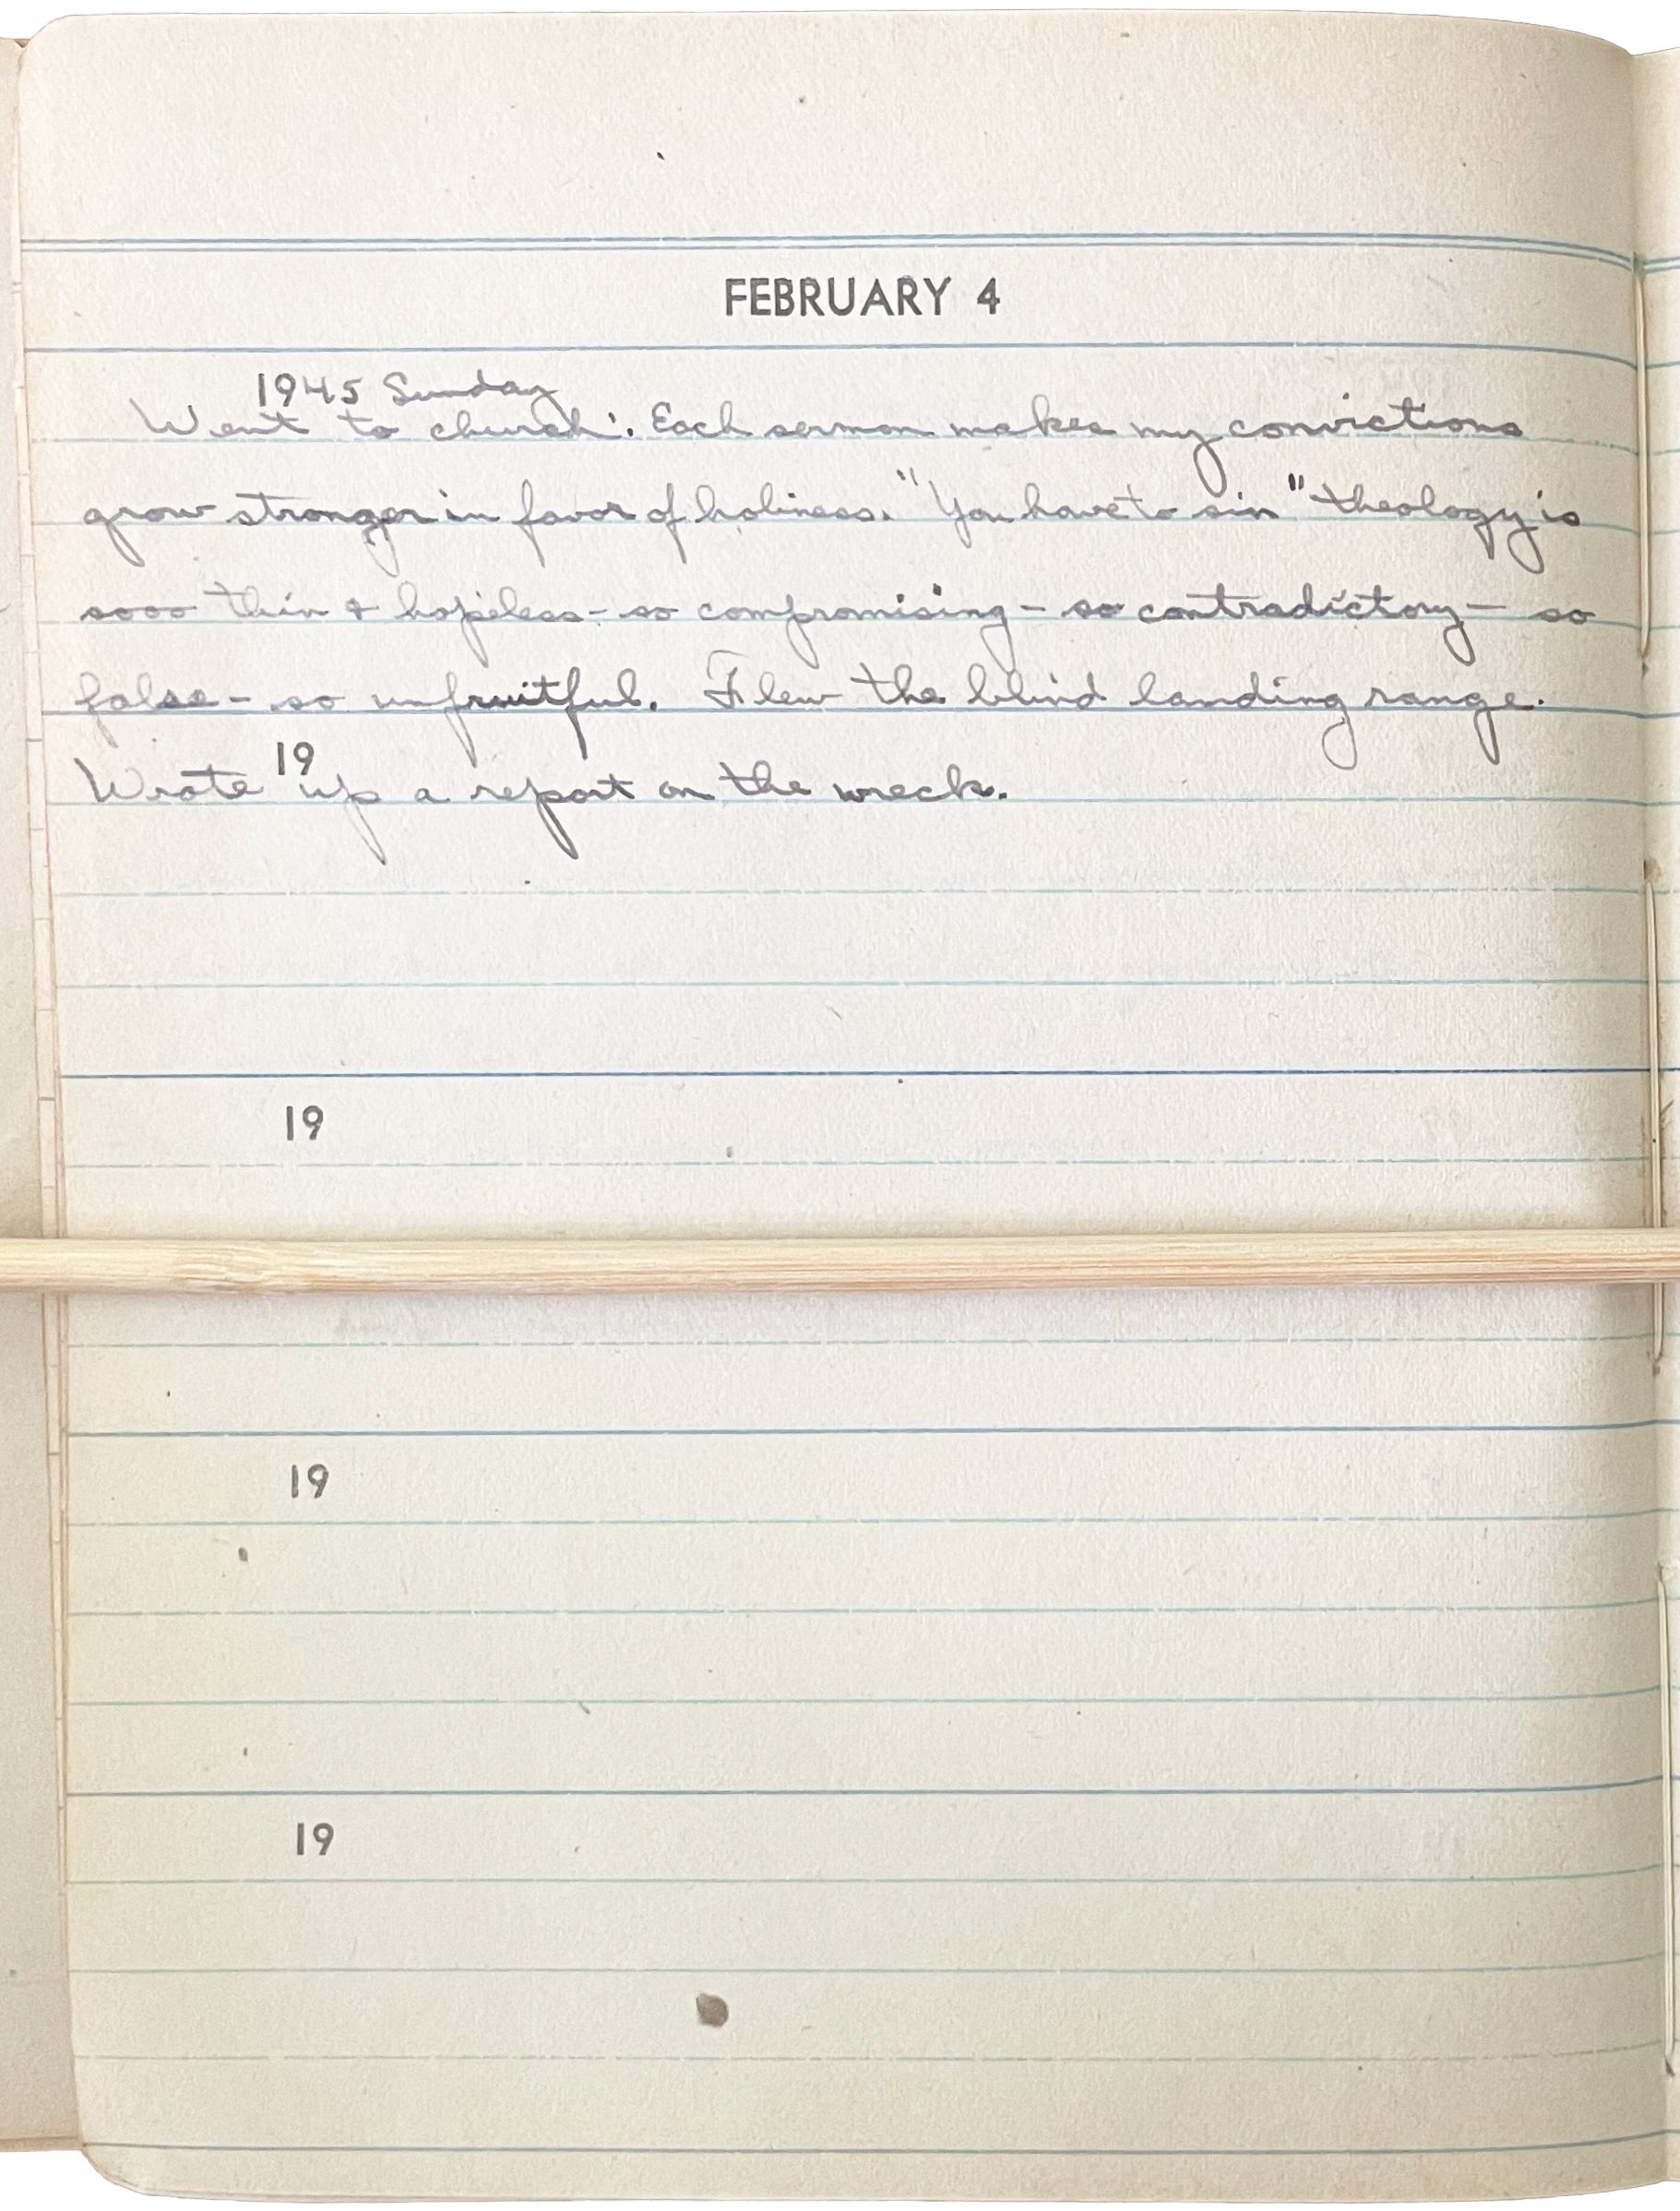 FEBRUARY 4
1945 Sunday
Went to church. Each sermon makes my convictions
grow stronger in favor of holiness. "You have to sin" theology is
sooo thin & hopeless - so compromising - so contradictory - so
false - so unfruitful. Flew the blind landing range.
19
Wrote up a report on the wreck.
19
19
19